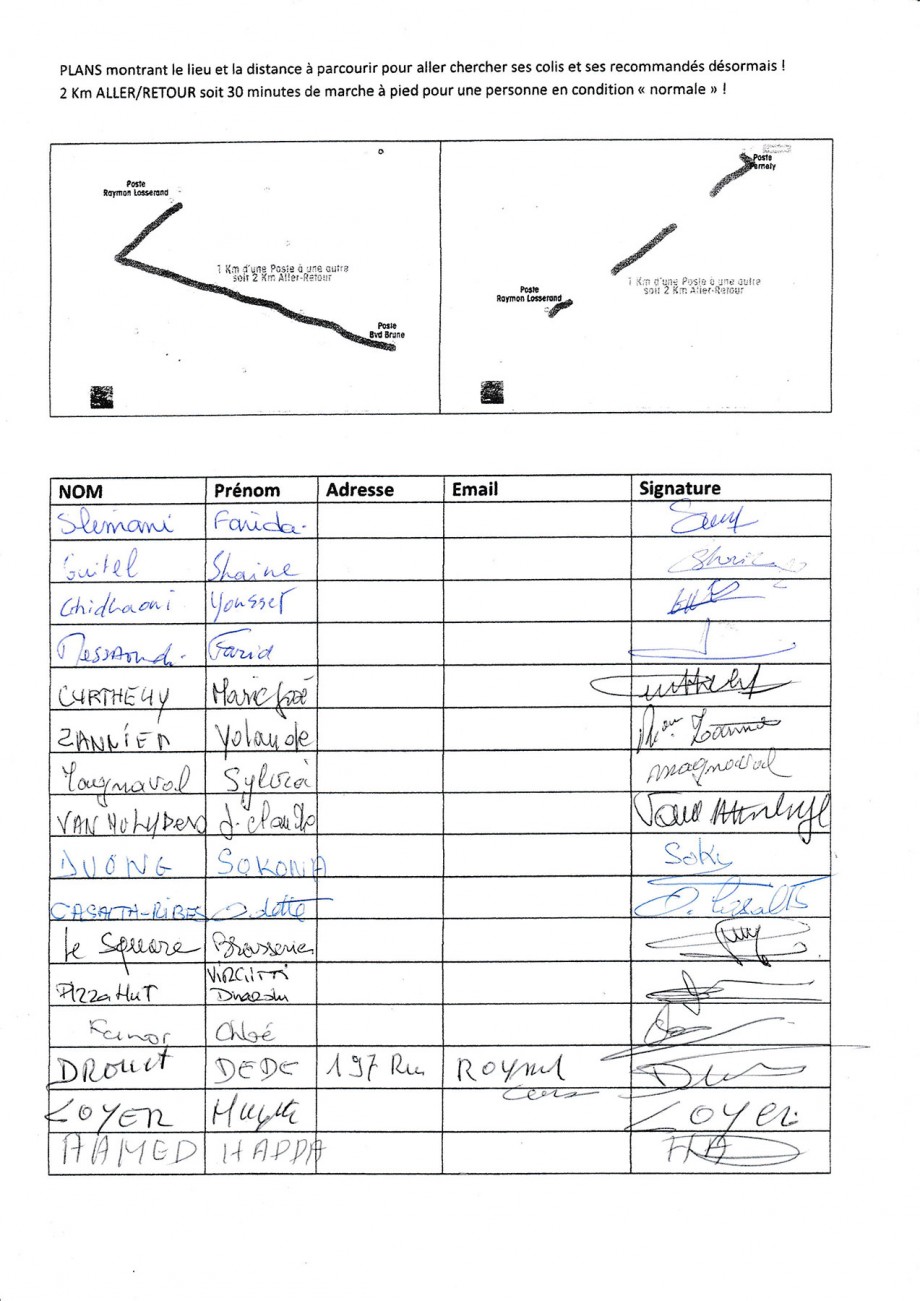 PLANS montrant le lieu et la distance à parcourir pour aller chercher ses colis et ses recommandés désormais !
2 Km ALLER/RETOUR soit 30 minutes de marche à pied pour une personne en condition « normale » !
Poste
Raymon Losserand
1 Km d'une Poste à une autre
soit 2 Km Aller-Retour
Poste
Bvd Brune
Poste
Pernety
1 Km d'une Poste à une autre
soit 2 Km Aller-Retour
Poste
Raymon Losserand
NOM Prénom Adresse Email Signature
Slimani Farida
Guitel Shaine
Ghidhaoui Youssef
Messaoudi Farid
CURTHELY Marie José
ZANNIER Yolande
Magnaval Sylvia magnaval
J. Claude
DUONG SOKONA Soky
CASALTA-RIBES Odette
Le Square Brasserie
Pizza Hut
Chloé
DROUET DEDE 197 Ru Raymd
LOYER Huguette LOYER
HAMED HADDA HA